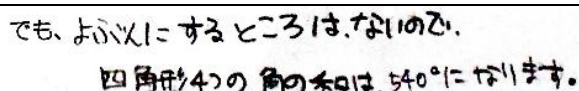 でも、よぶんにするところは、ないので、
四角形4つの角の和は、540°になります。